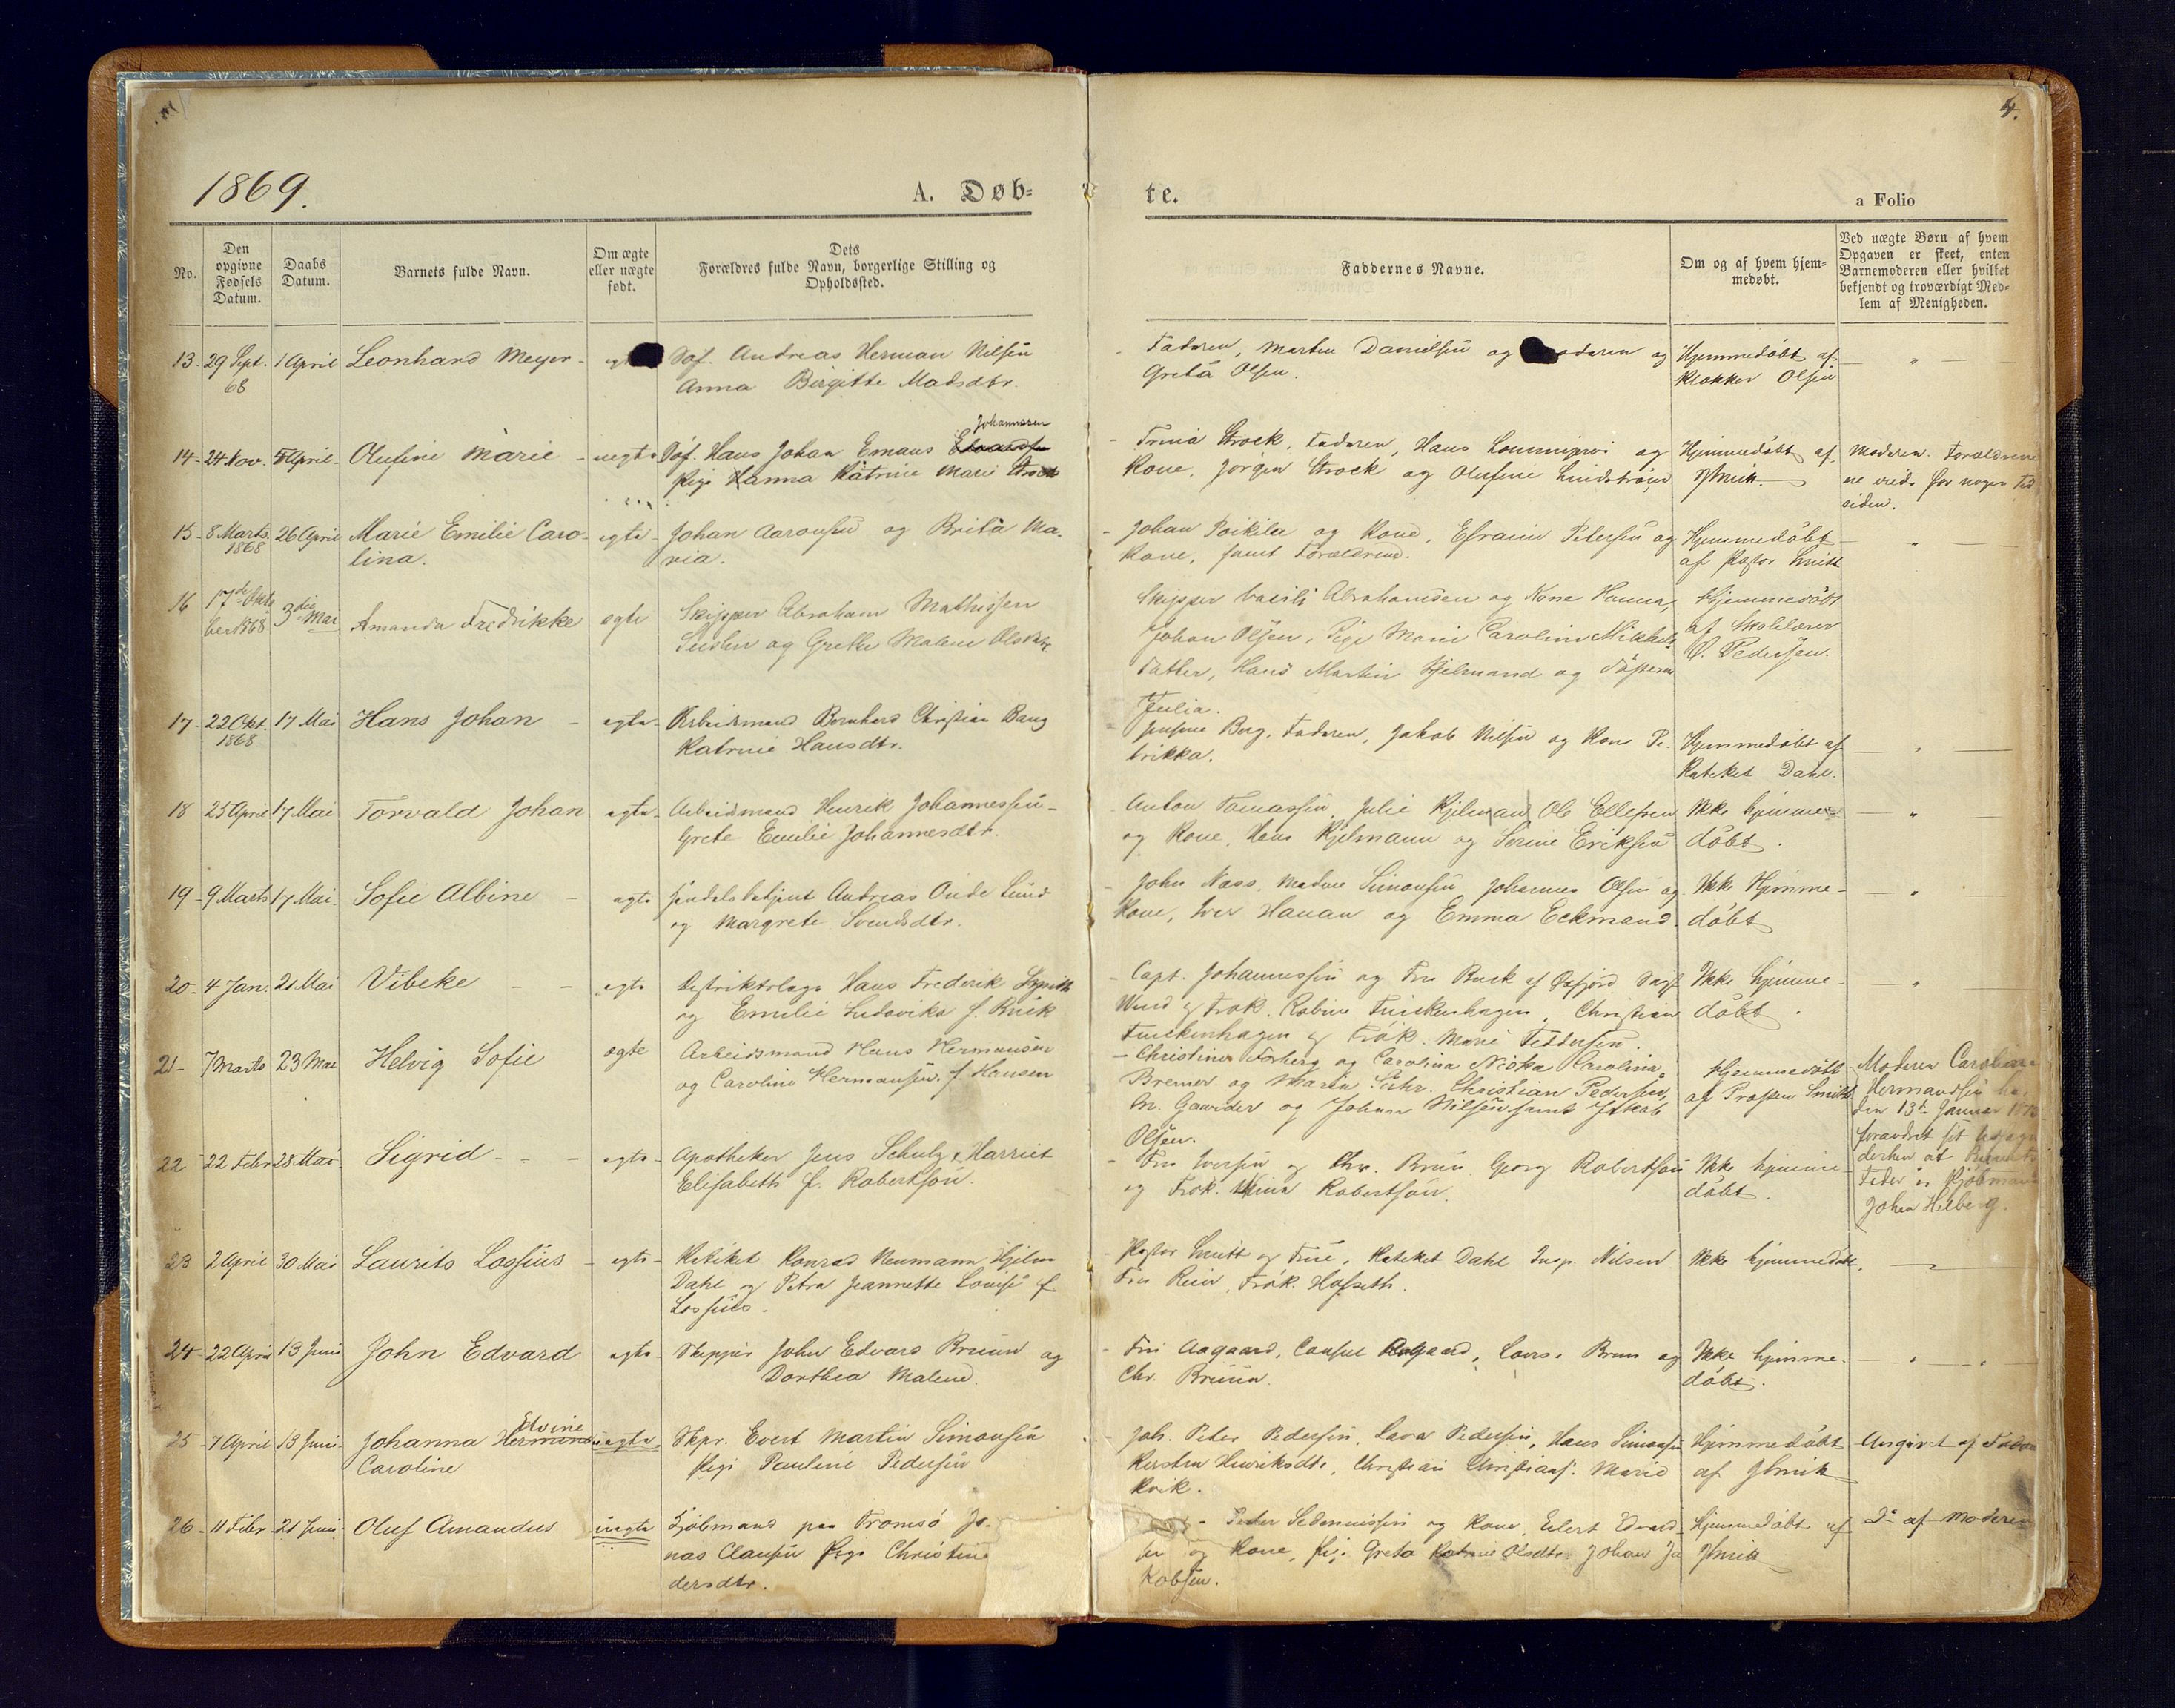 4.
1869.
A. Døb=
te.
a Folio
No.
Den opgivne Fødsels Datum.
Daabs Datum.
Barnets fulde Navn.
Om ægte eller uægte født.
Dets Forældres fulde Navn, borgerlige Stilling og Opholdssted.
Faddernes Navne.
Om og af hvem hjem=
medøbt.
Ved uægte Børn af hvem
Opgaven er skeet, enten
Barnemoderen eller hvilket
bekjendt og troværdigt Med=
lem af Menigheden.
13. 29 Sept. 1 April Leonhard Meyer - Andreas Herman Nilsen
68 Anna Birgitte Madsdtr.
Faderen, Marten Danielsen og og
Greta Olsen.
Hjemmedöbt af
Klokker Olsen
Johannesen
14- 24 Nov. April Olufine Marie - uegte Hans Johan Emaus
Pige Hanna Katrine Marie
Trina Strock, Faderen, Hans og
Kone, Jörgen Strock og Olufine Lindström
Hjemmedöbt af
Smith
Moderen. Forældrene
for nogen Tid
siden.
15- 8 Marts 26 April Marie Emilie Caro- egte - Johan Aaronsen og Brita Ma-
1868 lina. ria.
Johan Poikila og Kone, Efraim Petersen og
Kone, samt Forældrene.
Hjemmedöbt
af Pastor Smitt
16 17de Okto 3die Mai Amanda Fredrikke egte Skipper Abraham Mathissen
ber 1868 og Grethe Malene Olsdatr.
Skipper Vasili Abrahamsen og Kone Hanna,
Johan Olsen, Pige Marie Caroline Mikkels
datter, Hans Martin Kjelmand og Sösteren
Julia.
Hjemmedöbt
af Skolelærer
O. Pedersen.
17- 22 Okt. 17 Mai Hans Johan - egte- Arbeidsmand Bernhard Christian Bang
1868 Katrine Hansdtr.
Berg, Faderen, Jakob Nilsen og Kone Pe-
trikka.
Hjemmedöbt af
Kateket Dahl.
18 25 April 17 Mai Torvald Johan egte- Arbeidsmand Henrik Johannessen-
Grete Emilie Johannesdtr.
Anton Tomassen, Julie Kjelman Ole Ellefsen
og Kone, Hans Kjelmann og Serine Eriksen
Ikke hjemme-
döbt.
19- 9 Marts 17 Mai Sofie Albine - egte Handelsbetjent Andreas Lund
og Margrete Svendsdtr.
John Næss, Madme Simonsen, Johannes Olsen og
Kone, Iver Hanan og Emma Eckmand.
Ikke Hjemme-
döbt
20- 4 Jan. 21 Mai Vibeke - - egte Distriktslæge Hans Frederik
og Emilie Ludovika f. Buck
Capt. Johannessen og Fru Buck af Öxfjord
Wind & Frøk. Robine Finckenhagen, Christian
Finckenhagen & Frök. Marie Feddersen.
Ikke hjemme-
döbt.
21- 7 Marts 23 Mai Helvig Sofie ægte Arbeidsmand Hans Hermansen
og Caroline Hermansen, f. Hansen
- Christine Forberg og Carolina Niska Carolina
Bremer og Maria Fuhr. Christian Pedersen,
Gaarder og Johan Nilsen samt Jakob
Olsen.
Hjemmedöbt
af Smith
Moderen Caroline
Hermandsen
den 13de Januar
forandret sit
derhen at Barnets
Fader er Kjöbmand
Johan Hilberg.
22- 22 Febr 28 Mai Sigrid - - - egte- Apotheker Jens Schulz & Harriet
Elisabeth f. Robertson.
Fru Iversen og Chr. Bruun Georg Robertson
og Frøk. Mina Robertson.
Ikke hjemme-
döbt.
23 2 April 30 Mai Laurits Lossius - egte- Kateket Konrad Neumann Hjelm
Dahl og Petra Jeannette Louise f
Lossius.
Pastor Smitt og Frue, Kateket Dahl Insp. Nilsen
Fru Rein, Frök. Hofseth.
Ikke hjemmedöbt.
24- 22 April 13 Juni John Edvard egte- Skipper John Edvard Bruun og
Dorthea Malene.
Fru Aagaard, Consul Aagaard, Lovise Brun og
Chr. Bruun.
Ikke hjemme-
döbt.
Edvine
25- 7 April 13 Juni Johanna Hermine uegte Skpr. Evert Martin Simonsen
Caroline Pige Pauline Pedersen
Joh. Peter Pedersen, Lava Pedersen, Hans Simonsen
Kersten Henriksdtr, Christian Christians. Marie
Kvik.
Hjemmedöbt
af Smith
Angivet af Faderen
26- 11 Febr 21 Juni Oluf Amandus uegte Kjöbmand paa Tromsö Jo-
nas Clausen Pige Christine
dersdtr.
Peder og Kone, Eilert Edvard-
sen og Kone, Pige Greta Katrine Olsdtr. Johan Ja
kobsen.
Hjemmedöbt af
Smith
Do af Moderen